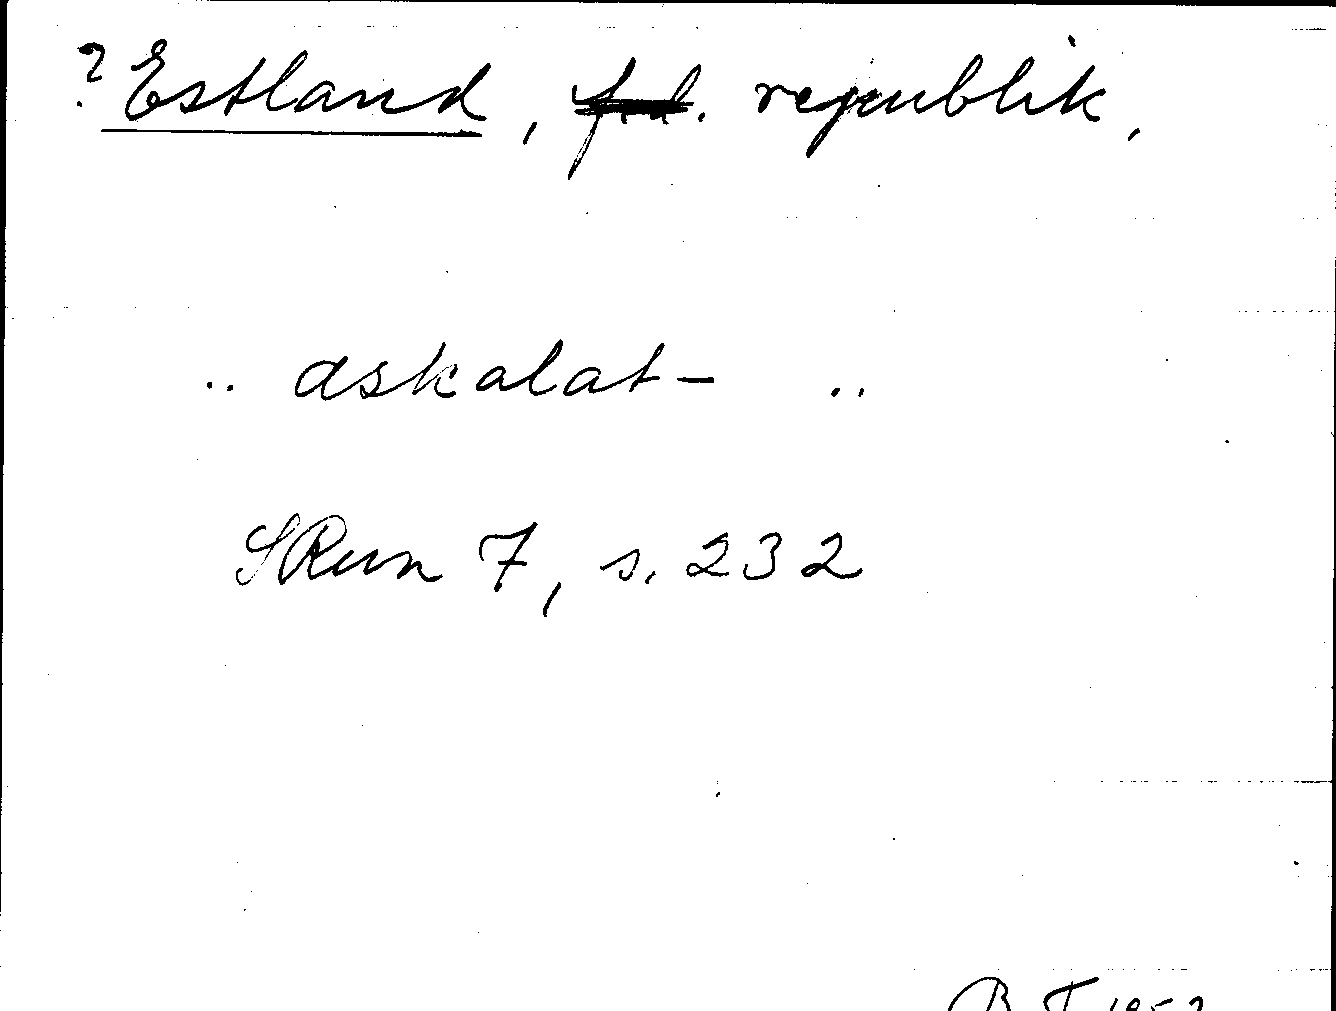 ? Estland, f.d. republik,
.. askalat- ..
SRun 7, s. 232